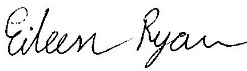 Eileen Ryan